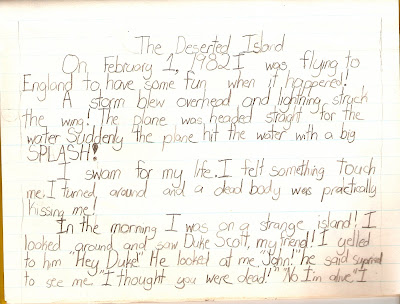 The Deserted Island
On February 1, 1982 I was flying to
England to have some fun when it happened!
A storm blew overhead and lightning struck
the wing! The plane was headed straght for the
water. Suddenly the plane hit the water with a big
SPLASH!
I swam for my life. I felt something touch
me. I turned around and a dead body was practically
kissing me!
In the morning I was on a strange island! I
looked around and saw Duke Scott, my friend! I yelled
to him "Hey Duke!" He looked at me "John!" he said suprised
to see me "I thought you were dead!" "No I'm alive" I